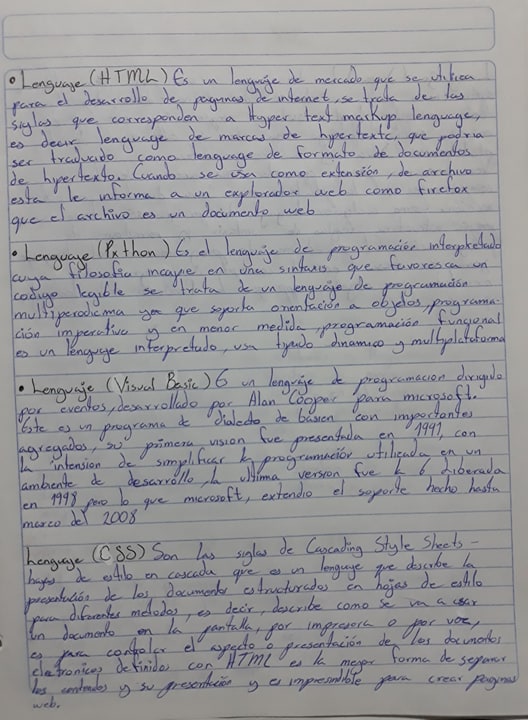 • Lenguaje (HTML) Es un lenguaje de mercado que se utiliza
para el desarrollo de paginas de internet, se trata de las
siglas que corresponden a Hyper text markup lenguage,
es decir lenguage de marcas de hipertexto, que podria
ser traducido como lenguage de formato de documentos
de hipertexto. Cuando se usa como extensión, de archivo
esta le informa a un explorador web como firefox
que el archivo es un documento web
• Lenguaje (Python) Es el lenguaje de programación interpretado
cuya filosofia incapie en una sintaxis que favoresca un
codigo legible se trata de un lenguaje de programación
multiperadicma ya que soporta orientación a objetos, programa-
ción imperativa y en menor medida, programación funcional
es un lenguage interpretado, usa tipado dinamico y multiplataforma
• Lenguaje (Visual Basic) Es un lenguaje de programacion dirigido
por eventos, desarrollado por Alan Cooper para microsoft.
Este es un programa de dialecto de basien con importantes
agregados, su primera vision fue presentada en 1991, con
la intension de simplificar la programación utilizada en un
ambiente de desarrollo, la ultima version fue la 6 liberada
en 1998 pero lo que microsoft, extendio el soporte hecho hasta
marzo del 2008
Lenguaje (CSS) Son las siglas de Cascading Style Sheets -
hojas de estilo en cascada que es un lenguaje que describe la
presentación de los documentos estructurados en hojas de estilo
para diferentes metodos, es decir, describe como se va a usar
un documento en la pantalla, por impresora o por voz,
es para controlar el aspecto o presentación de los documentos
electronicos definidos con HTML es la mejor forma de separar
los contenidos y su presentación y es impresindible para crear paginas
web.